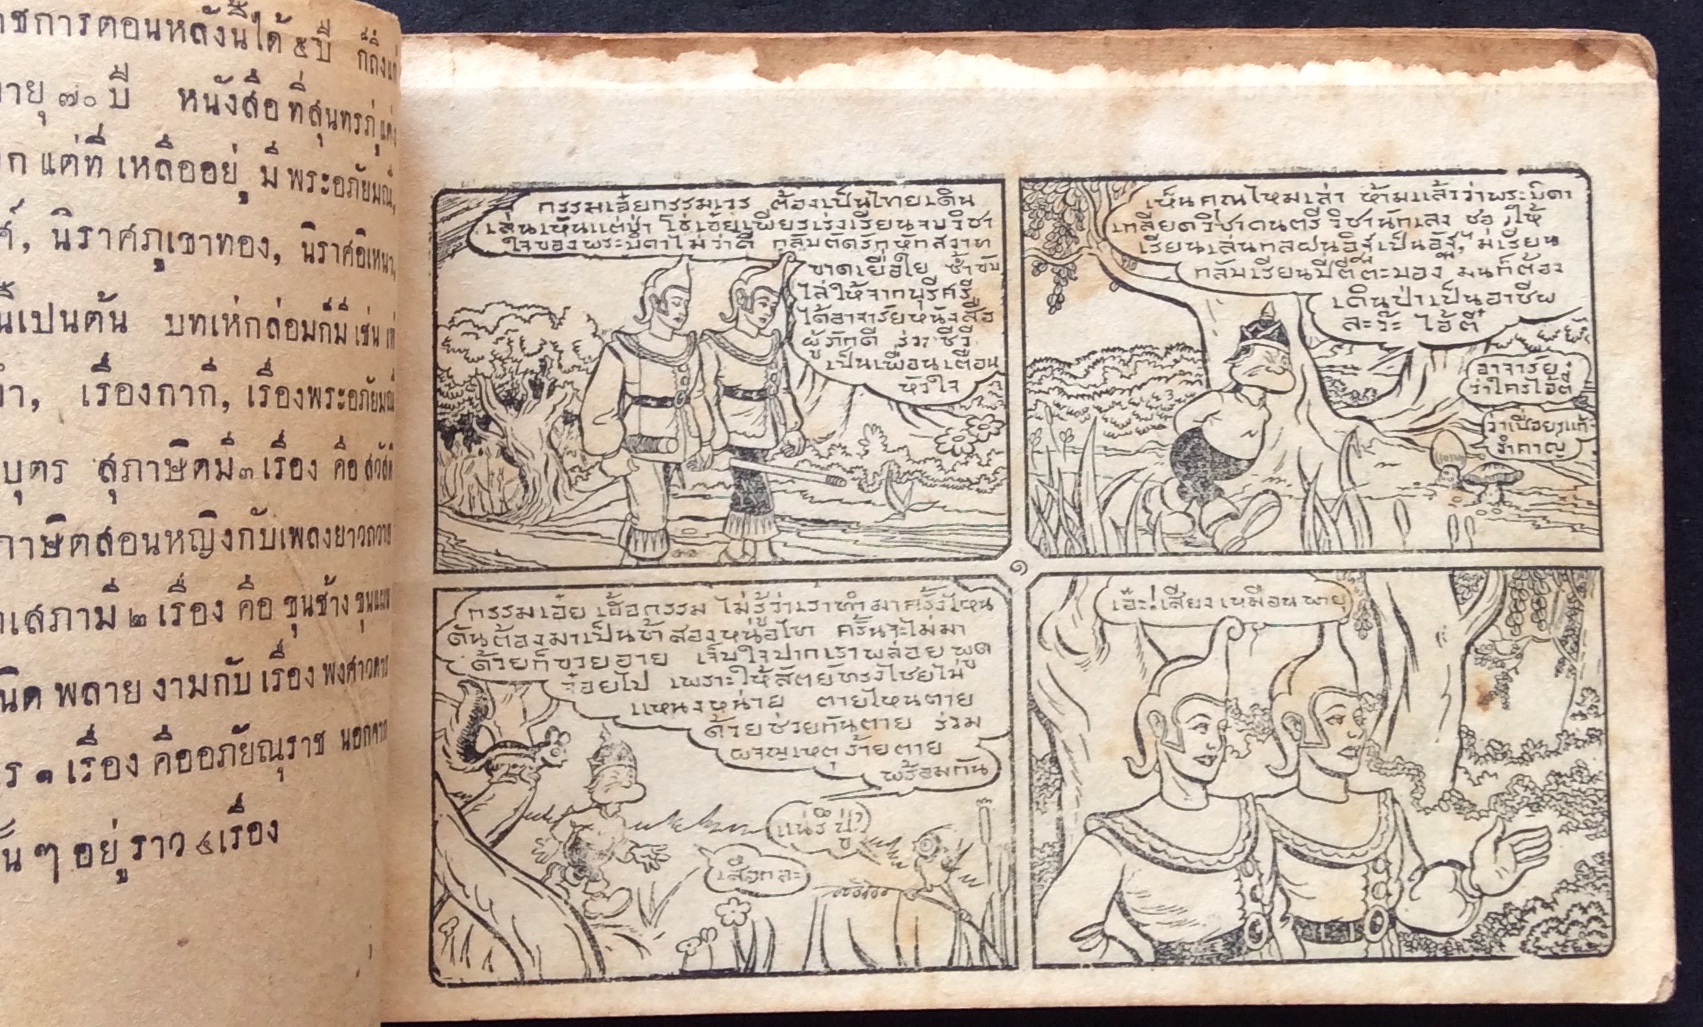 าชการตอนหลังนี้ได้ ๕ ปี ก็ถึงแก่
อายุ ๗๐ ปี หนังสือ ที่สุนทรภู่ แต่ง
ก แต่ที่ เหลืออยู่ มี พระอภัยมณี,
ศ์, นิราศภูเขาทอง, นิราศอิเหนา,
นี้เปนต้น บทเห่กล่อมก็มี เช่น เห่
ำ, เรื่องกากี, เรื่องพระอภัยมณี
บุตร สุภาษิตมี ๓ เรื่อง คือ สวัสดิ
ภาษิตสอนหญิงกับเพลงยาวถวาย
เสภามี ๒ เรื่อง คือ ขุนช้าง ขุนแผน
นิด พลาย งามกับ เรื่อง พงศาวดาร
ร ๑ เรื่อง คืออภัยณุราช นอกจาก
นั้น ๆ อยู่ ราว ๔ เรื่อง
กรรมเอ๋ยกรรมเวร ต้องเป็นไทยเดิน
เล่นเห็นแต่ป่า โธ่เอ๋ยเพียรเร่งเรียนจบวิชา
ใจของพระบิดาไม่ว่าดี กลับตัดรักหักสวาท
ขาดเยื่อใย ซ้ำขับ
ไล่ให้จากบุรีศรี
ได้อาจารย์หนังสือ
ผู้ภักดี ร่วมชีวี
เป็นเพื่อนเตือน
หัวใจ
เห็นคุณไหมเล่า ห้ามแล้วว่าพระบิดา
เกลียดวิชาดนตรี วิชานักเลง ชอบให้
เรียนเล่นกลฝนอิฐเป็นอัฐ ไม่เรียน
กลับเรียนปี่ตีตะบอง มันก็ต้อง
เดินป่าเป็นอาชีพ
ละว๊ะ ไอ้ตี๋
อาจารย์
ว่าใครไอ้ตี๋
ว่าเปื่อยแก้
รำคาญ
๑
กรรมเอ๋ย เฮ้อกรรม ไม่รู้ว่าเราทำมาครั้งไหน
ดันต้องมาเป็นข้าสองหน่อไท ครั้นจะไม่มา
ด้วยก็ขวยอาย เจ็บใจปากเราพล่อยพูด
จ๋อยไป เพราะให้สัตย์ทรงไชยไม่
แหนงหน่าย ตายไหนตาย
ด้วยช่วยกันตาย ร่วม
ผจญเหตุร้ายตาย
พร้อมกัน
แน่รึปู่
เลือกละ
เอ๊ะ! เสียงเหมือนพายุ